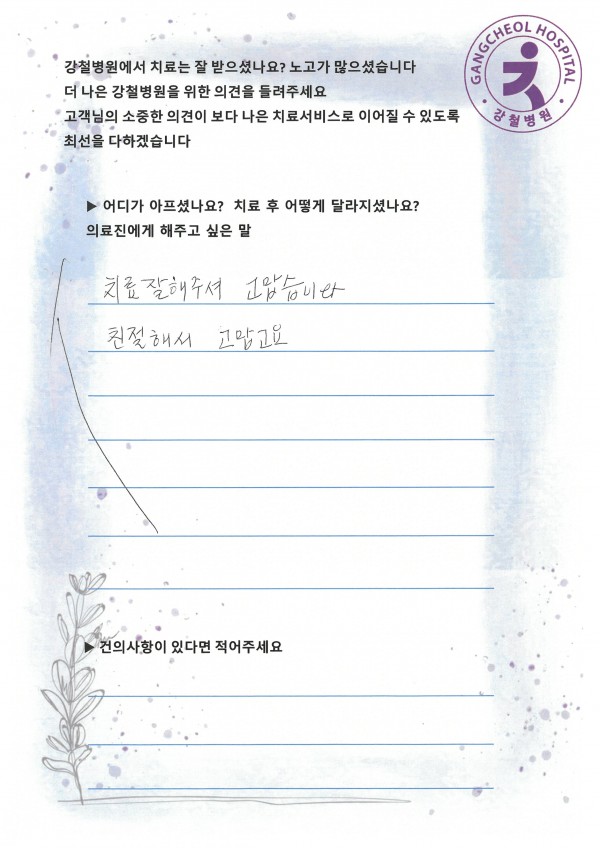 강철병원에서 치료는 잘 받으셨나요? 노고가 많으셨습니다
더 나은 강철병원을 위한 의견을 들려주세요
고객님의 소중한 의견이 보다 나은 치료서비스로 이어질 수 있도록
최선을 다하겠습니다
GANGCHEOL HOSPITAL
강철병원
▶ 어디가 아프셨나요? 치료 후 어떻게 달라지셨나요?
의료진에게 해주고 싶은 말
치료잘해주셔 고맙습니다
친절해서 고맙고요
▶ 건의사항이 있다면 적어주세요